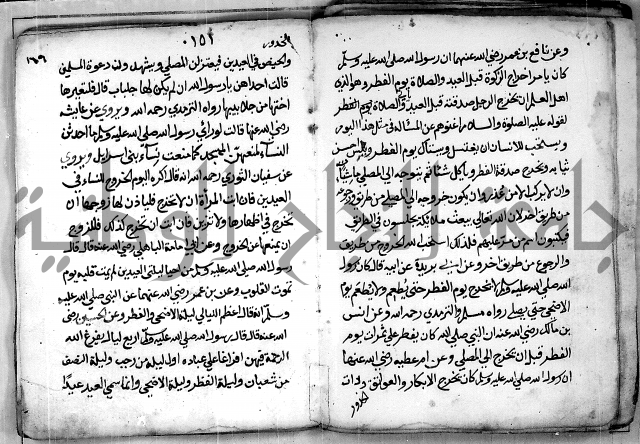 وعن نافع بن عمر رضي الله عنهما ان رسول الله صلى الله عليه وسلم
كان يامر اخراج الزكوة قبل العيد والصلاة يوم الفطر وهو الذي
اهل العلم ان تخرج الرجل صدقته قبل العيد والصلاة يوم الفطر
لقوله عليه الصلوة والسلام اغنوهم عن المسئالة في مثل هذا اليوم
ويستحب للانسان ان يغتسل ويستاك يوم الفطر ويلبس احسن
ثيابه ويخرج صدقة الفطر وياكل شئا ثم يتوجه الى المصلى ماشيا
وان لا يركب الا من عذر وان يكون خروجه الى المصلى من طريق ورجوعه
من طريق اخر لان الله تعالى يبعث ملائكة يجلسون في الطريق
فيكتبون اسم من مر عليهم فلذلك استحب له الخروج من طريق
والرجوع من طريق اخر وعن ابن بريدة عن ابيه قال كان رسول
الله صلى الله عليه وسلم لا يخرج يوم الفطر حتى يطعم ولا يطعم يوم
الاضحى حتى يصلى رواه مسلم والترمذي رحمه الله وعن انس
بن مالك رضي الله عنه ان النبي صلى الله كان يفطر على تمرات يوم
الفطر قبل ان يخرج الى المصلى وعن ام عطية رضي الله عنها
ان رسول الله صلى الله عليه وسلم كان يخرج الابكار والعواتق وذات
الخدور
١٥١
١٦٩
الخدور
والحيض في العيدين فيعتزلن المصلى ويشهدن دعوة المسلمين
قالت احداهن يا رسول الله ان لم يكن لها جلباب قال فلتعيرها
اختها من جلابيبها رواه الترمذي رحمه الله ويروى عن عايشه
رضي الله عنها قالت لو رأى رسول الله صلى الله عليه وسلم ما احدثن
النساء لمنعهن المسجد كما منعت نساء بني اسرايل ويروى
عن سفيان الثوري رحمه الله قال اكره اليوم الخروج للنساء في
العيدين فان ابت المرأة ان لا تخرج فلياذن لها زوجها ان
تخرج في اطهارها ولا تتزين فان ابت ان تخرج كذلك فللزوج
ان يمنعها عن الخروج وعن ابي امامة الباهلي رضي الله عنه قال قال
رسول الله صلى الله عليه وسلم من احيا ليلتي العيدين لم يمت قلبه يوم
تموت القلوب وعن بن عمر رضي الله عنهما عن النبي صلى الله عليه
وسلم انه قال اعظم الليالي ليلة الاضحى والفطر وعن الحسين رضي
الله عنه قال قال رسول الله صلى الله عليه وسلم اربع ليال يفرغ الله
الرحمة فيهن افراغا على عباده اول ليلة من رجب وليلة النصف
من شعبان وليلة الفطر وليلة الاضحى وانما سمي العيد عيدا
جامعة النجاح الوطنية